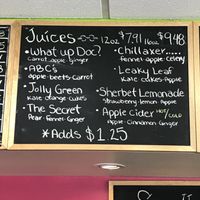 Juices 12oz $7.91 16oz $9.48
• What up Doc?
Carrot-apple-ginger
• ABC's
apple-beets-carrot
• Jolly Green
Kale orange cukes
• The Secret
Pear-Fennel-Ginger
• Chillaxer.....
fennel-apple-Celery
• Leaky Leaf
Kale-cukes-Apple
• Sherbet Lemonade
Strawberry-lemon-Apple
• Apple Cider HOT/COLD
Apple-Cinnamon-Ginger
*Adds $1.25